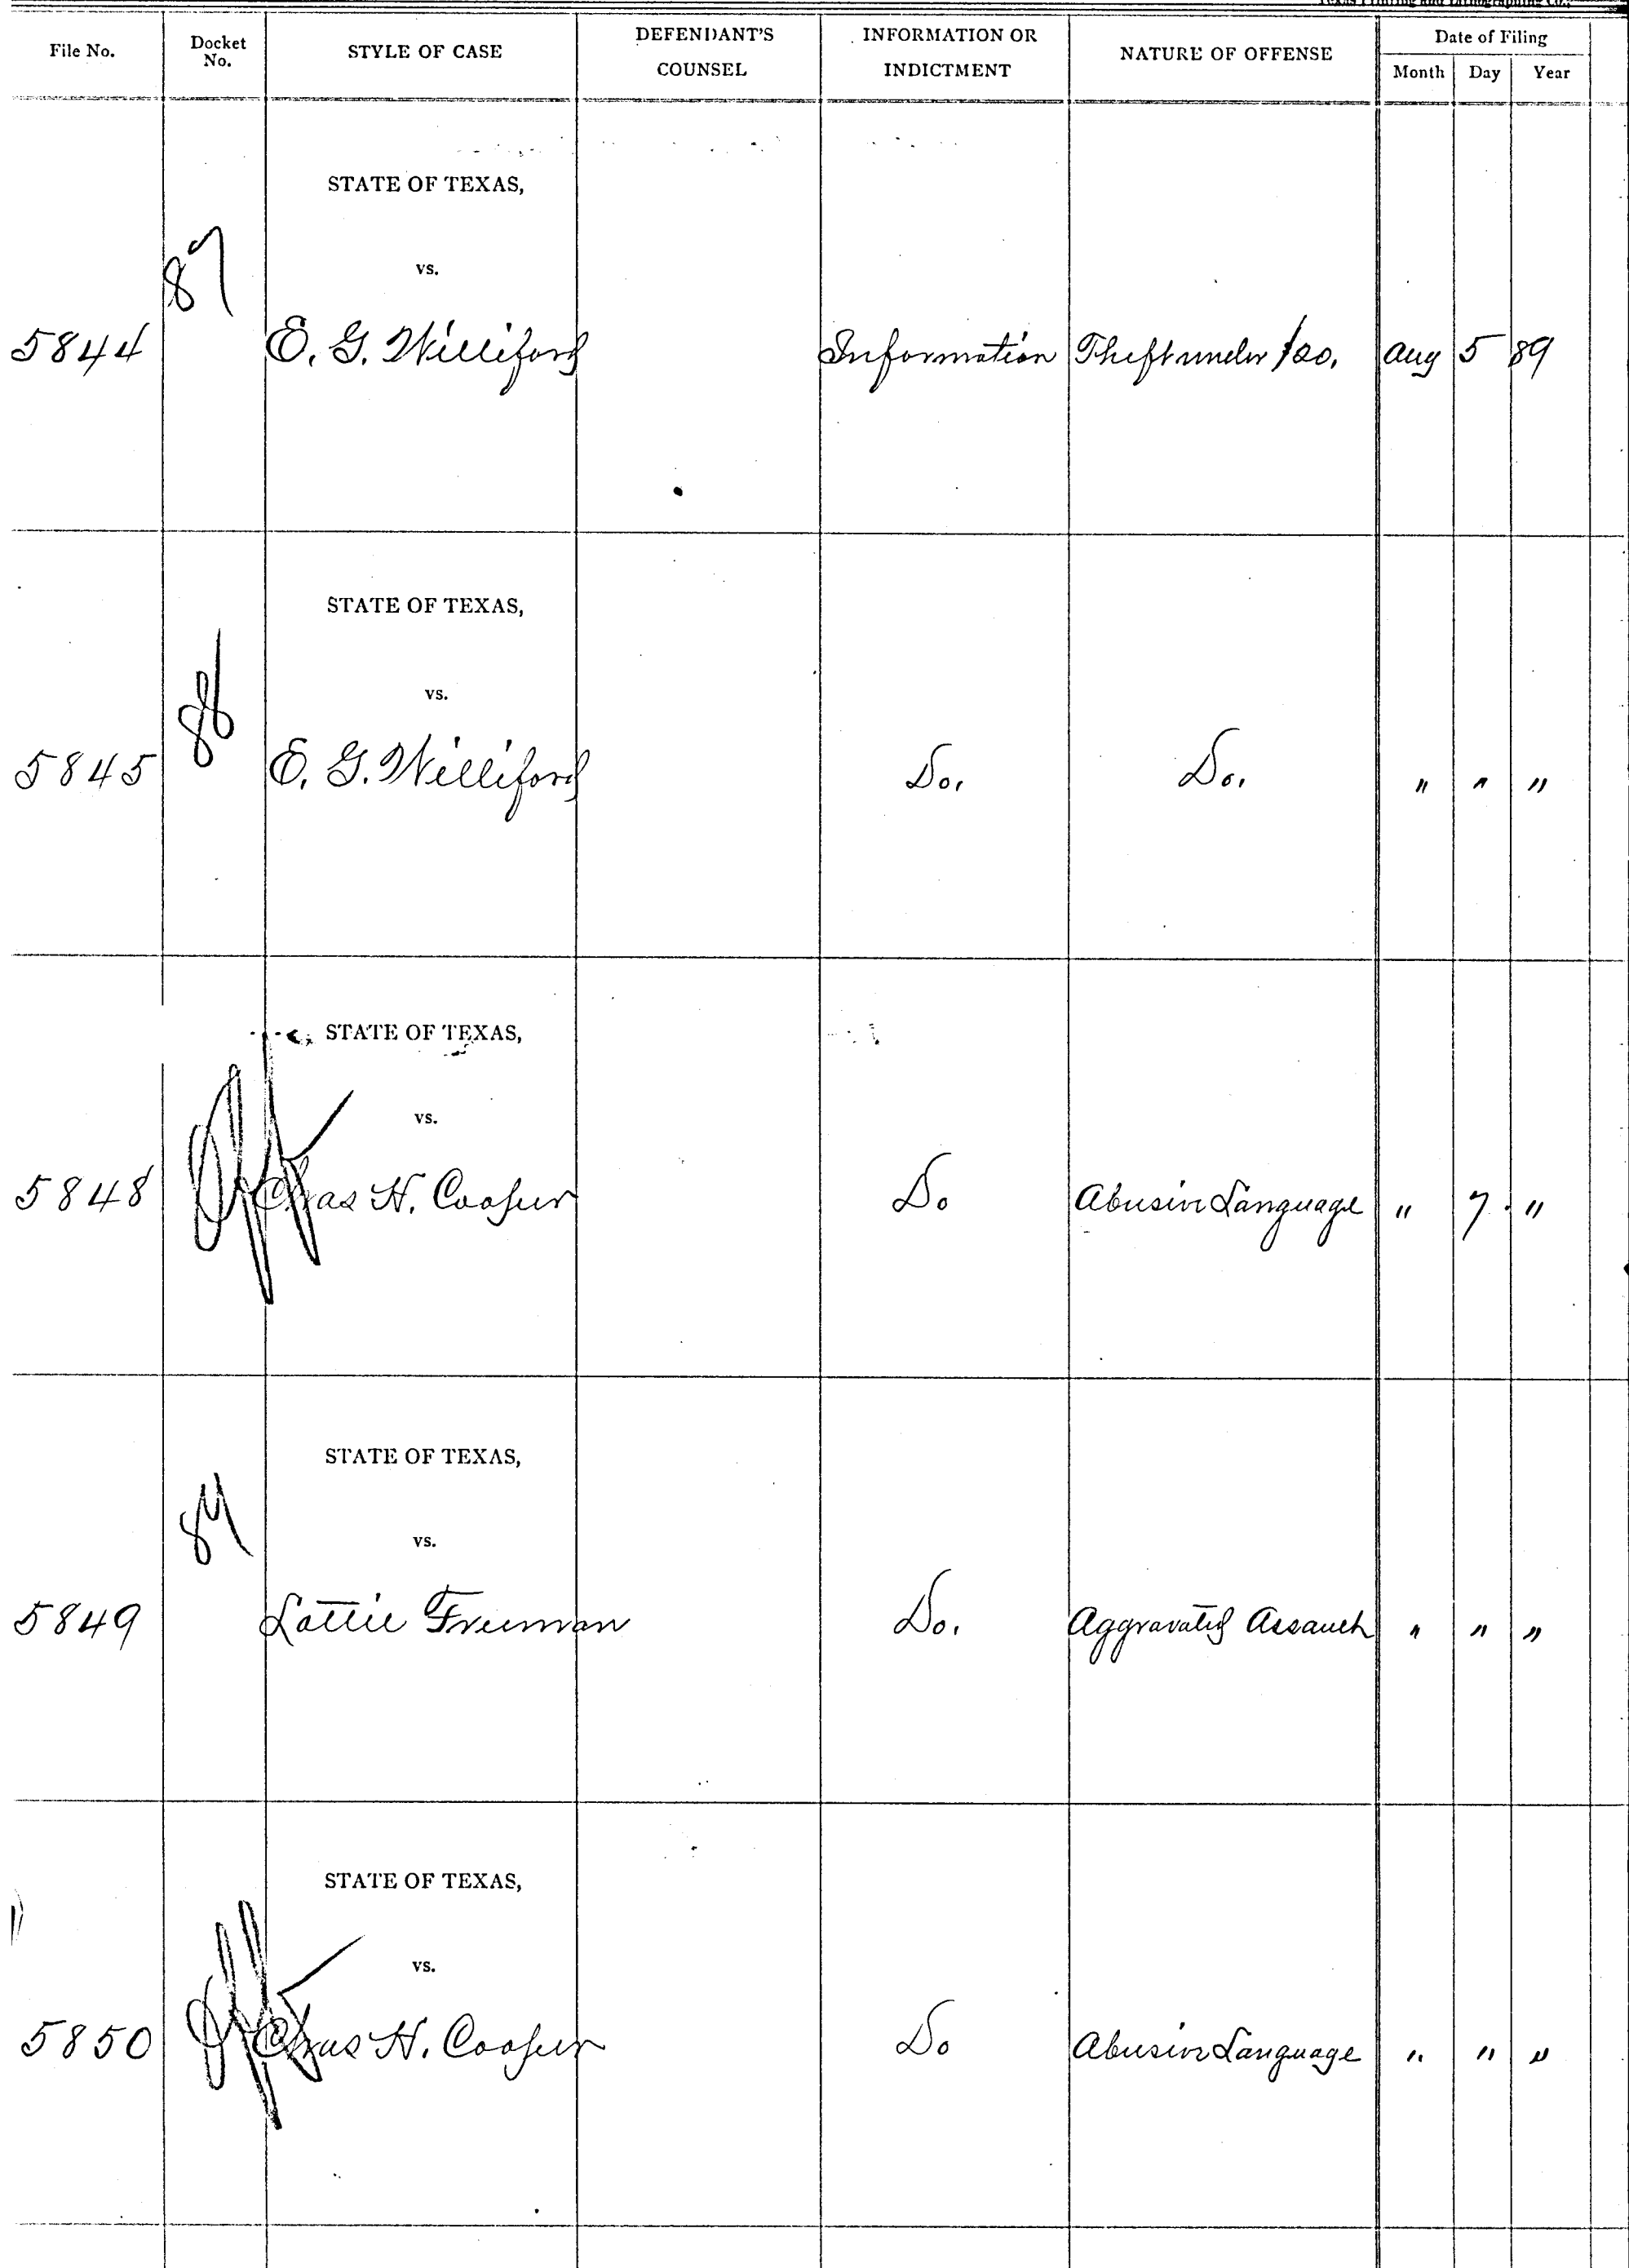 Texas Printing and Lithographing Co.,
File No. Docket No. STYLE OF CASE DEFENDANT'S COUNSEL INFORMATION OR INDICTMENT NATURE OF OFFENSE Date of Filing
Month Day Year
STATE OF TEXAS,
87
vs.
5844 E. G. Williford Information Theft under $20. Aug 5 89
STATE OF TEXAS,
88
vs.
5845 E. G. Williford Do. Do. " " "
STATE OF TEXAS,
vs.
5848 Chas H. Cooper Do Abusive Language " 7 "
STATE OF TEXAS,
89
vs.
5849 Lottie Freeman Do. Aggravated Assault " " "
STATE OF TEXAS,
vs.
5850 Chas H. Cooper Do Abusive Language " " "